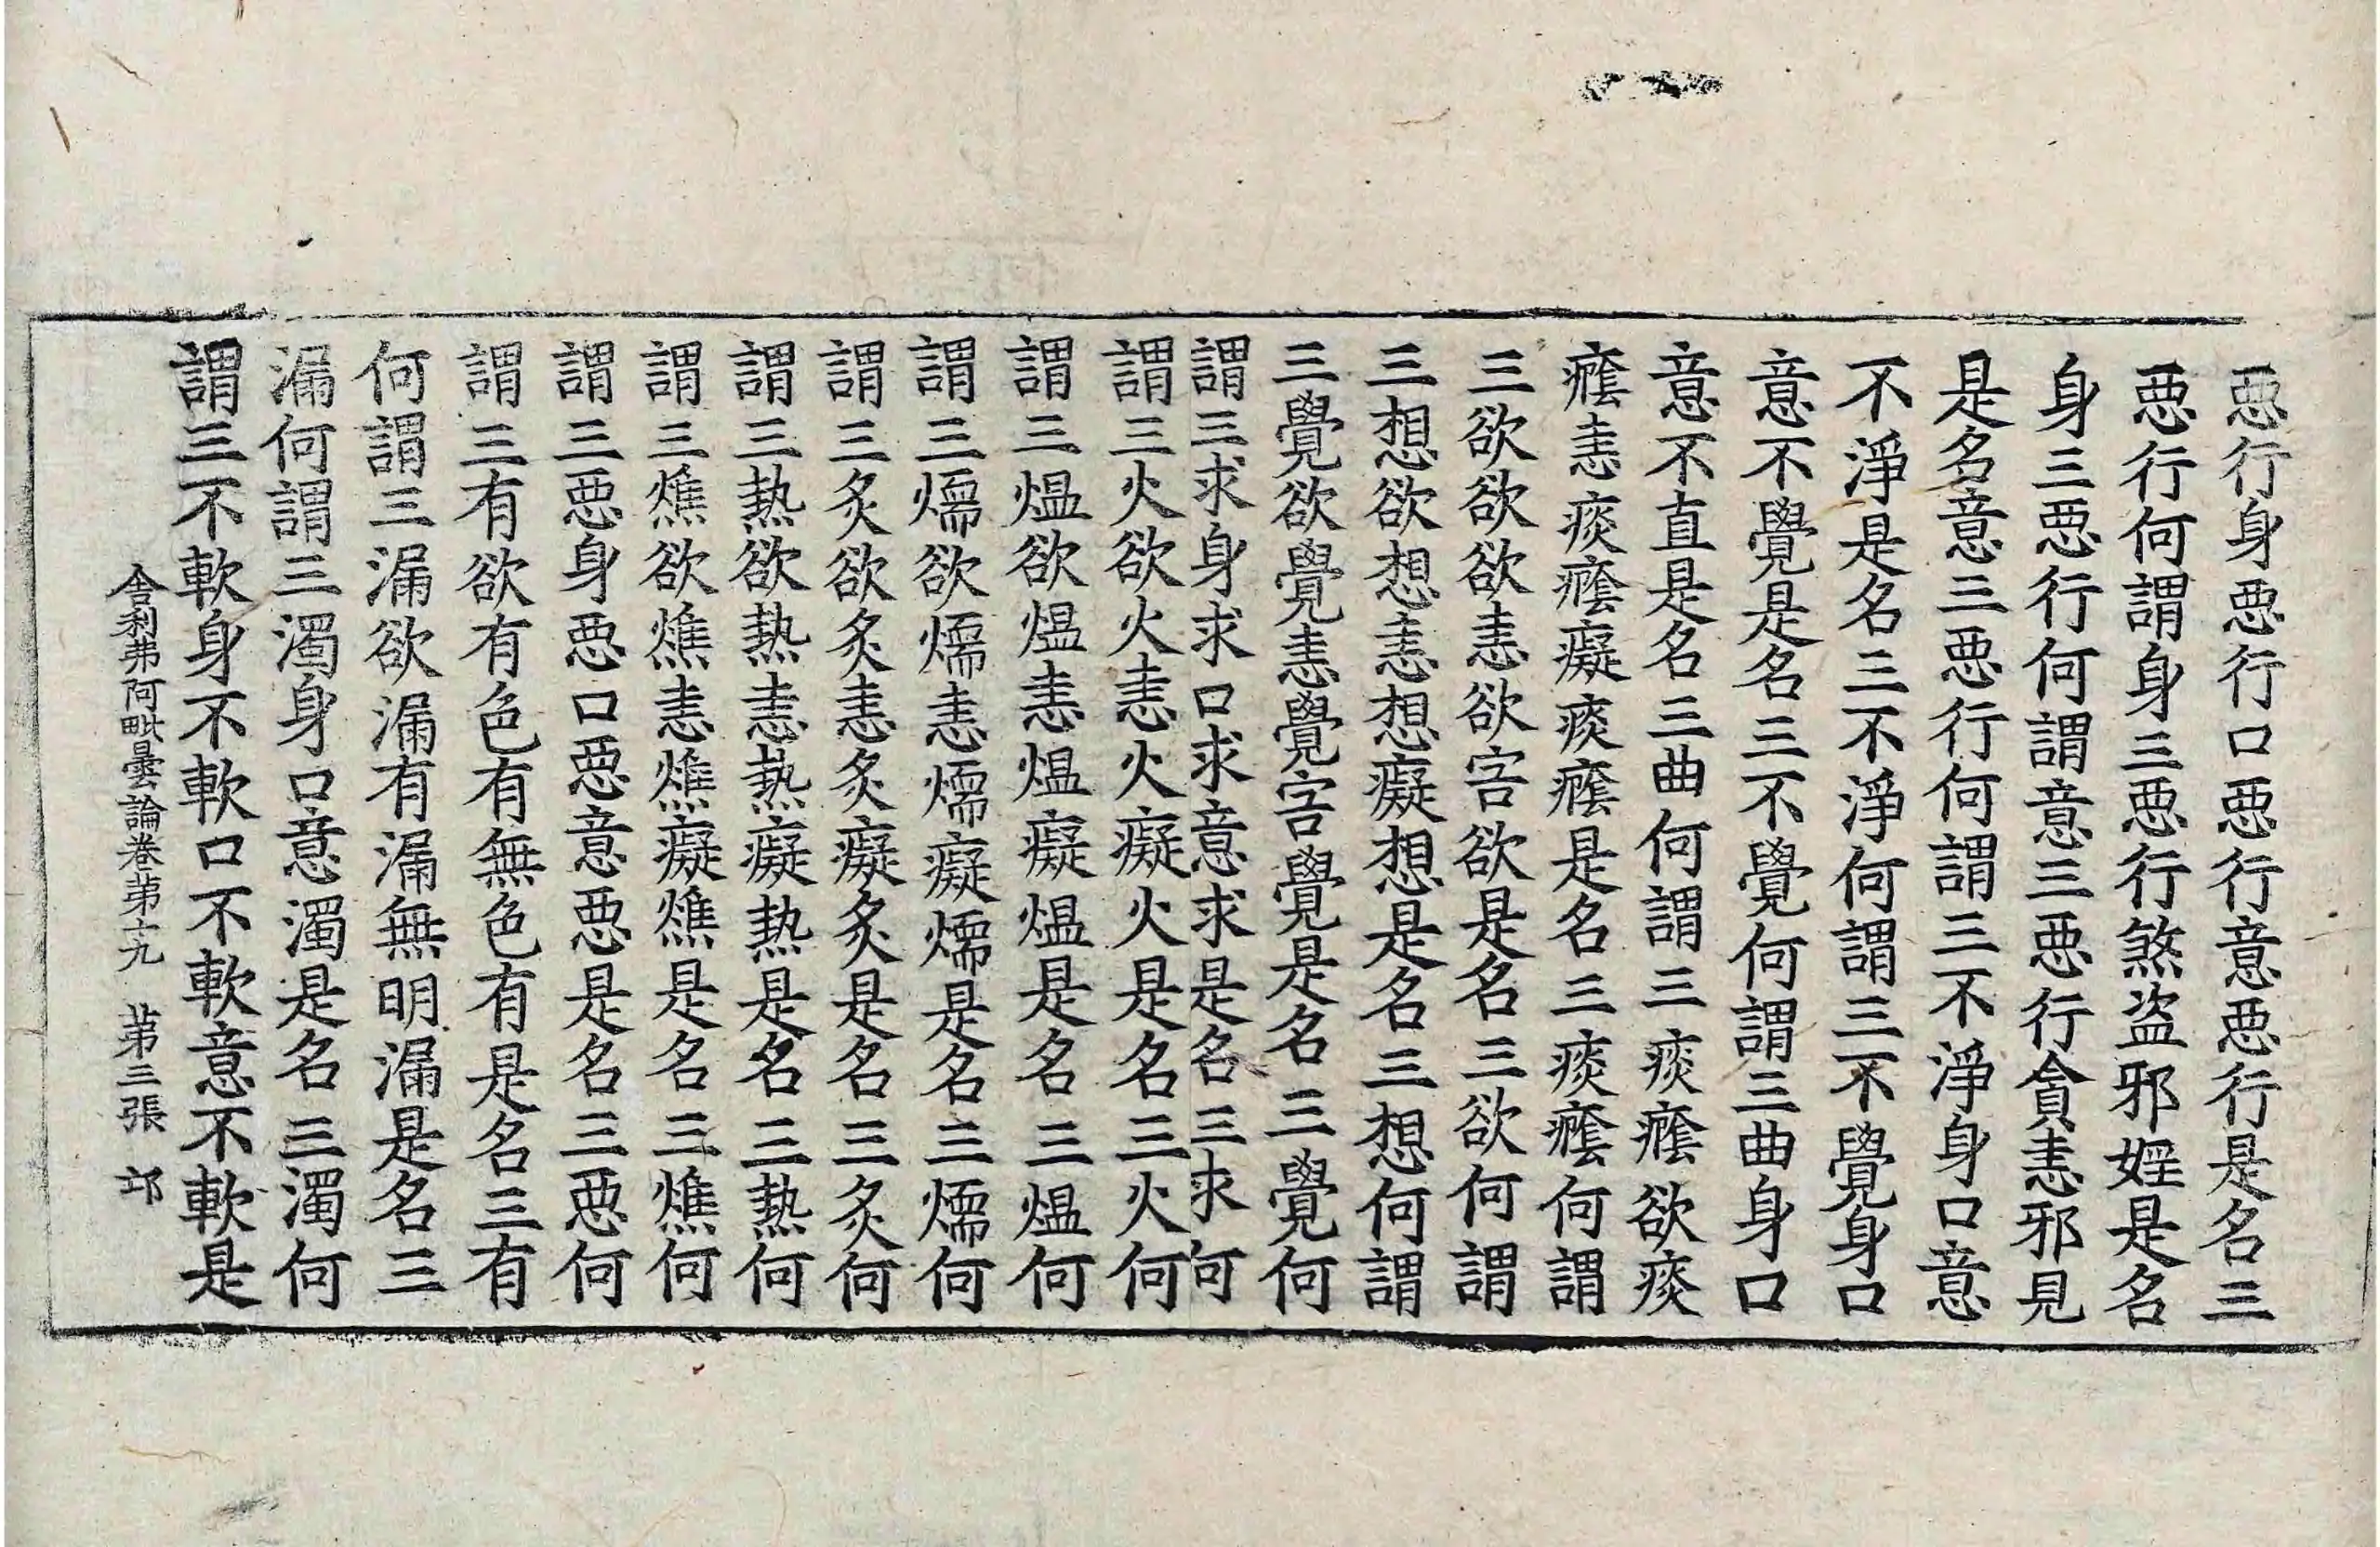 惡行身惡行口惡行意惡行是名三
惡行何謂身三惡行煞盗邪婬是名
身三惡行何謂意三惡行貪恚邪見
是名意三惡行何謂三不淨身口意
不淨是名三不淨何謂三不覺身口
意不覺是名三不覺何謂三曲身口
意不直是名三曲何謂三痰癊欲痰
癊恚痰癊癡痰癊是名三痰癊何謂
三欲欲欲恚欲害欲是名三欲何謂
三想欲想恚想癡想是名三想何謂
三覺欲覺恚覺害覺是名三覺何
謂三求身求口求意求是名三求何
謂三火欲火恚火癡火是名三火何
謂三熅欲熅恚熅癡熅是名三熅何
謂三燸欲燸恚燸癡燸是名三燸何
謂三炙欲炙恚炙癡炙是名三炙何
謂三熱欲熱恚熱癡熱是名三熱何
謂三燋欲燋恚燋癡燋是名三燋何
謂三惡身惡口惡意惡是名三惡何
謂三有欲有色有無色有是名三有
何謂三漏欲漏有漏無明漏是名三
漏何謂三濁身口意濁是名三濁何
謂三不軟身不軟口不軟意不軟是
舎利弗阿毗曇論卷第十九 第三張 卭